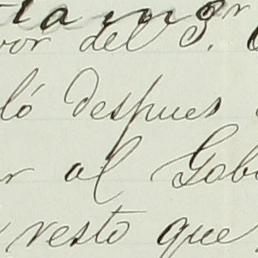 por del S.
ló despues
r al Gob
resto que